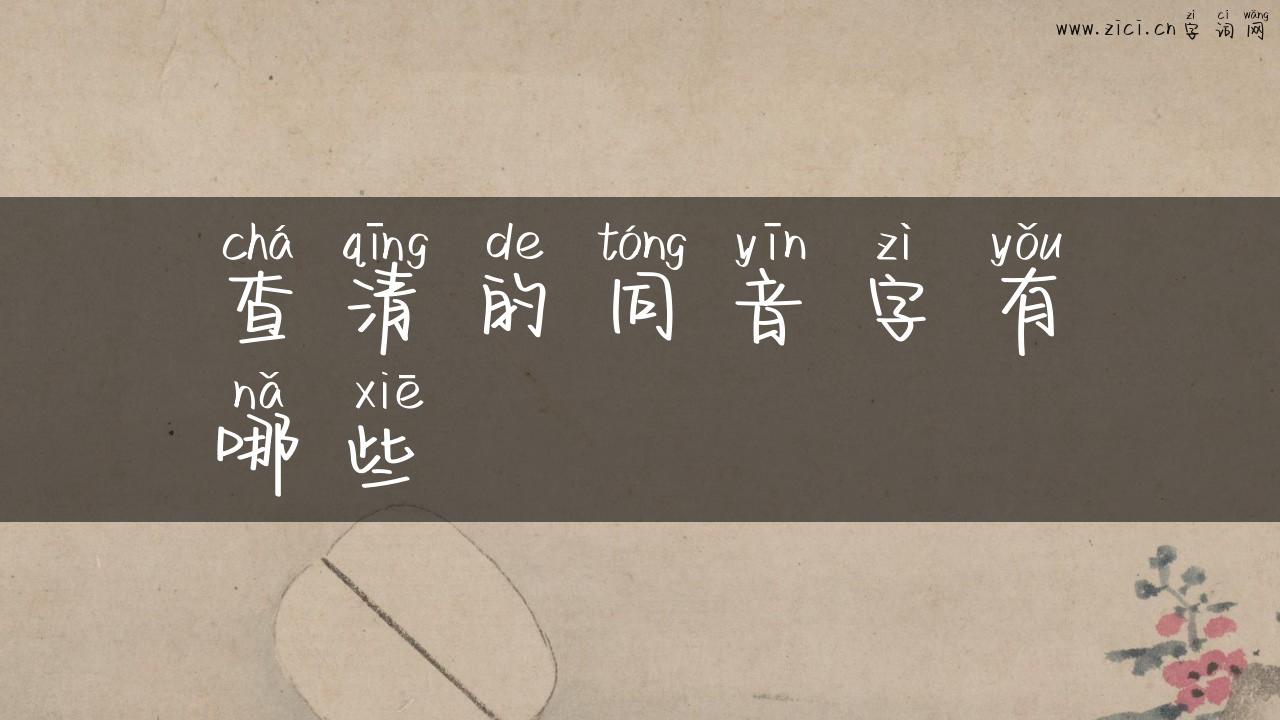 zì cí wǎng
www.zici.cn字词网
chá qīng de tóng yīn zì yǒu
查清的同音字有
nǎ xiē
哪些